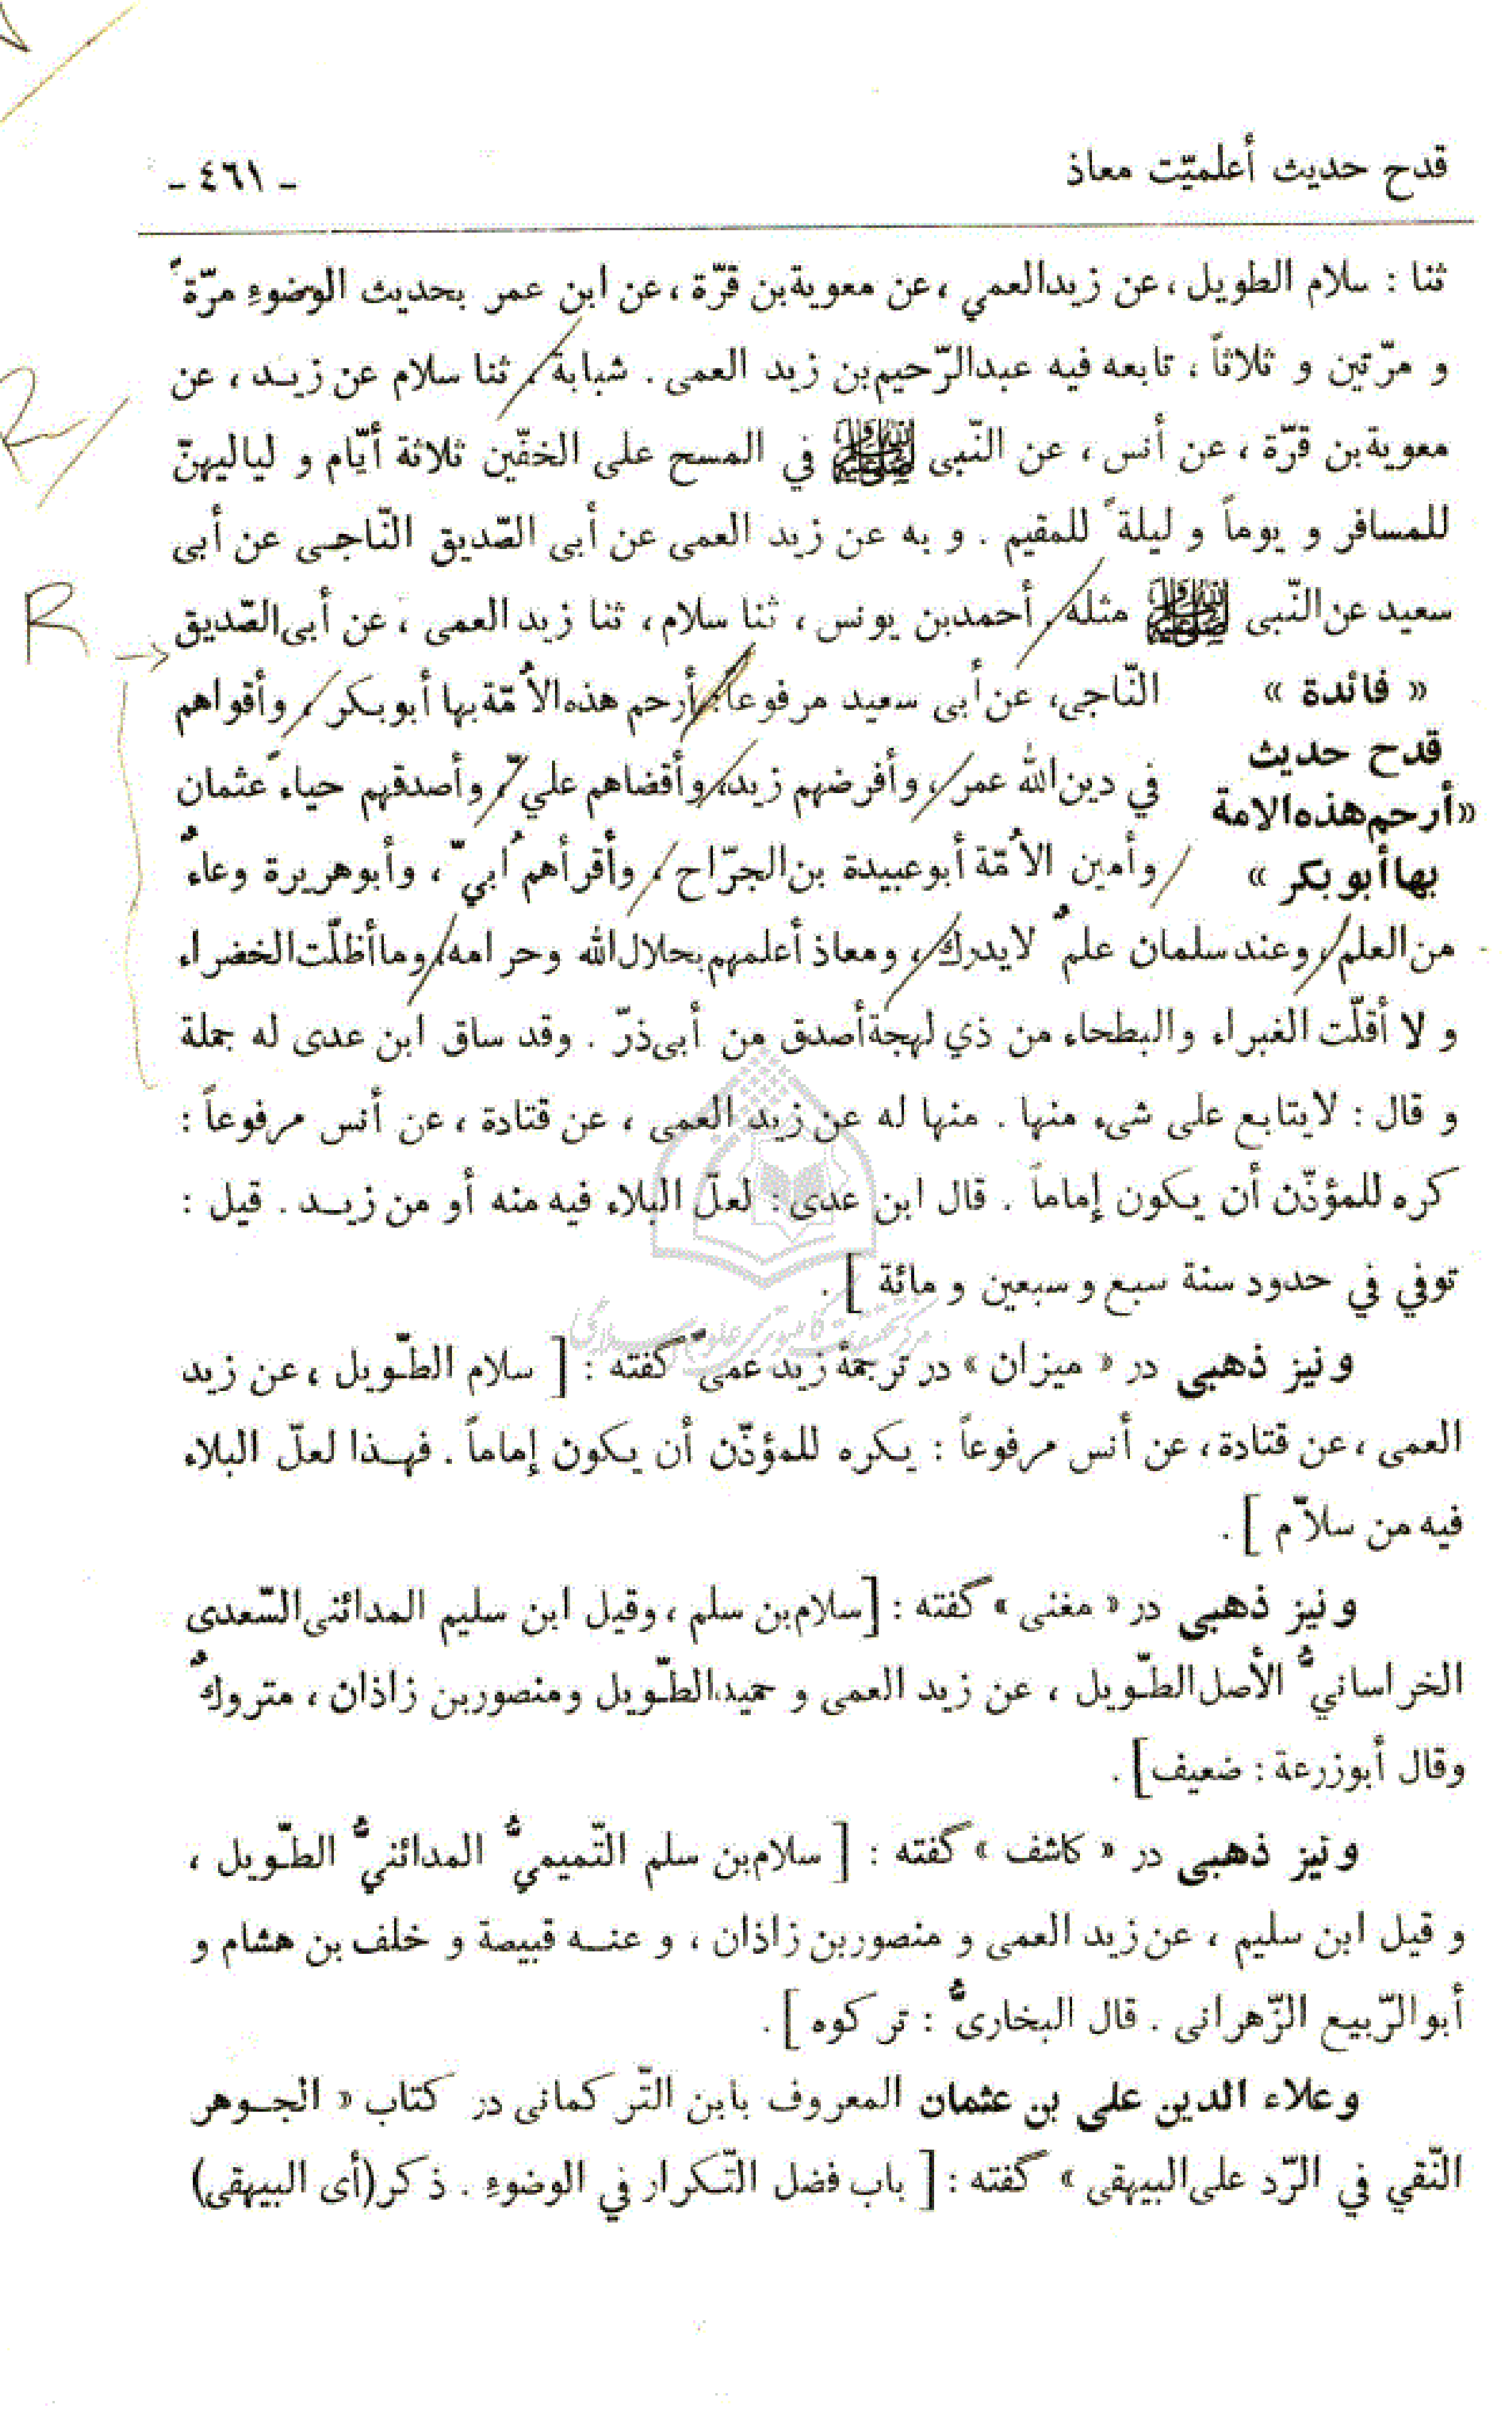 قدح حديث أعلميّت معاذ
- ٤٦١ -
ثنا : سلام الطويل ، عن زيدالعمي ، عن معوية بن قرّة ، عن ابن عمر بحديث الوضوءِ مرّةً
و مرّتين و ثلاثاً ، تابعه فيه عبدالرّحيم بن زيد العمى . شبابة ، ثنا سلام عن زيـد ، عن
معوية بن قرّة ، عن أنس ، عن النّبى ﷺ في المسح على الخفّين ثلاثة أيّام و لياليهنّ
للمسافر و يوماً و ليلةً للمقيم . و به عن زيد العمى عن أبى الصّديق النّاجـى عن أبى
سعيد عن النّبى ﷺ مثله . أحمدبن يونس ، ثنا سلام ، ثنا زيد العمى ، عن أبى الصّديق
« فائدة »
قدح حديث
«أرحم هذه الامة
بها أبو بكر »
النّاجى، عن أبى سعيد مرفوعاً: أرحم هذه الاُمّة بها أبو بكر ، وأقواهم
في دين الله عمر ، وأفرضهم زيد، وأقضاهم عليّ ، وأصدقهم حياءً عثمان
وأمين الاُمّة أبو عبيدة بن الجرّاح ، وأقرأهم اُبيّ ، وأبو هريرة وعاءٌ
من العلم ، وعند سلمان علمٌ لا يدرك ، ومعاذ أعلمهم بحلال الله وحرامه، وما أظلّت الخضراء
و لا أقلّت الغبراء والبطحاء من ذي لهجة أصدق من أبى ذرّ . وقد ساق ابن عدى له جملة
و قال : لايتابع على شىء منها . منها له عن زيد العمى ، عن قتادة ، عن أنس مرفوعاً :
كره للمؤذّن أن يكون إماماً . قال ابن عدى : لعلّ البلاء فيه منه أو من زيـد . قيل :
توفي في حدود سنة سبع و سبعين و مائة ] .
و نيز ذهبى در « ميزان » در ترجمۀ زيد عمىّ گفته : [ سلام الطّويل ، عن زيد
العمى ، عن قتادة ، عن أنس مرفوعاً : يكره للمؤذّن أن يكون إماماً . فهـذا لعلّ البلاء
فيه من سلاّم ] .
و نيز ذهبى در « مغنى » گفته : [سلام بن سلم ، وقيل ابن سليم المدائنى السّعدى
الخراسانيُّ الأصل الطّويل ، عن زيد العمى و حميد الطّويل و منصور بن زاذان ، متروكٌ
وقال أبوزرعة : ضعيف] .
و نيز ذهبى در « كاشف » گفته : [ سلام بن سلم التّميميُّ المدائنيُّ الطّويل ،
و قيل ابن سليم ، عن زيد العمى و منصور بن زاذان ، و عنـه قبيصة و خلف بن هشام و
أبو الرّبيع الزّهرانى . قال البخارىُّ : تركوه] .
و علاء الدين على بن عثمان المعروف بابن التّركمانى در كتاب « الجـوهر
النّقي في الرّد على البيهقى » گفته : [ باب فضل التّكرار في الوضوءِ . ذكر(أى البيهقى)
R
R